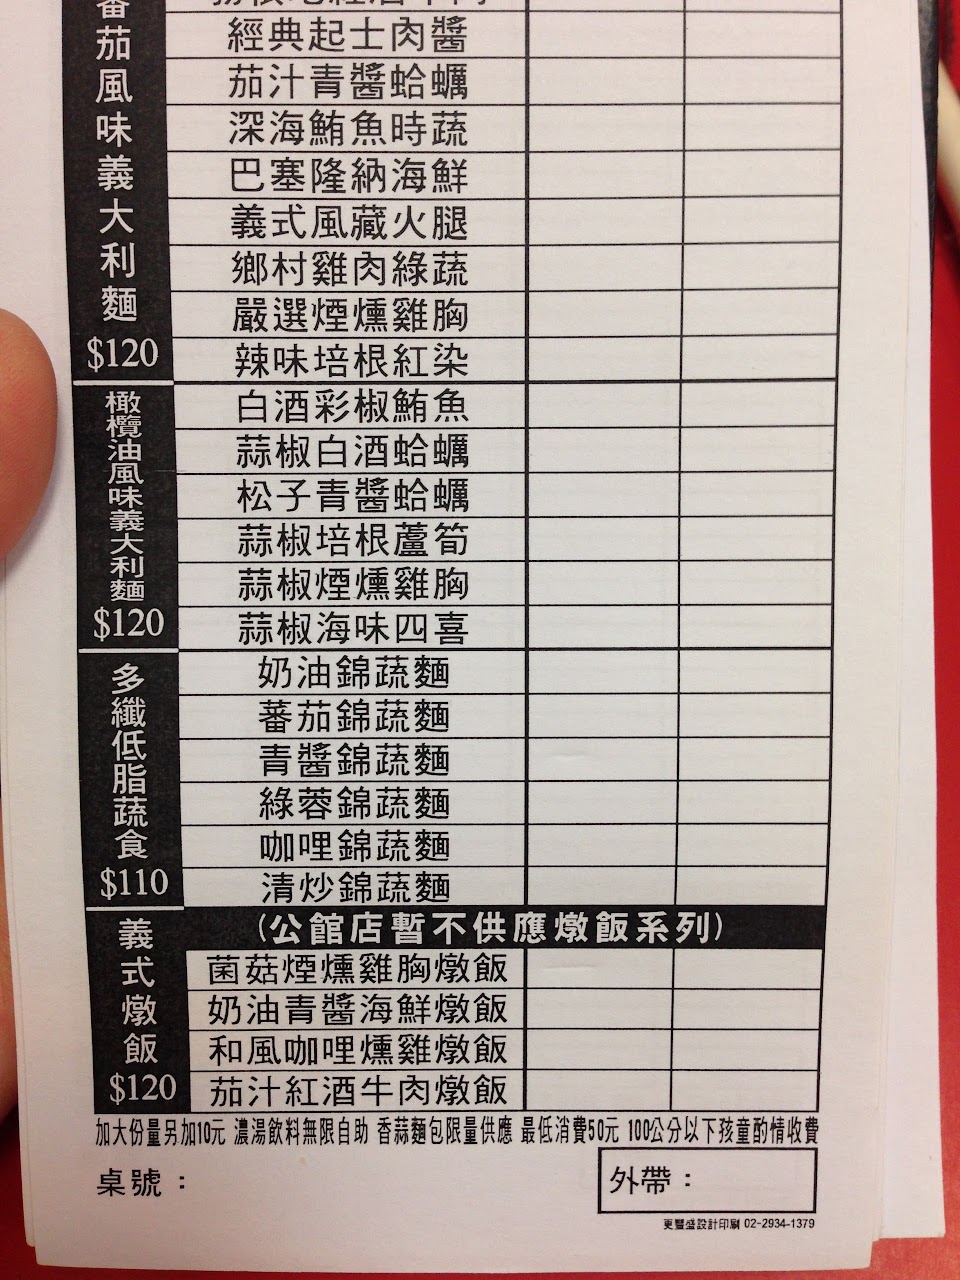 蕃茄風味義大利麵
$120
經典起士肉醬
茄汁青醬蛤蠣
深海鮪魚時蔬
巴塞隆納海鮮
義式風藏火腿
鄉村雞肉綠蔬
嚴選煙燻雞胸
辣味培根紅染
橄欖油風味義大利麵
$120
白酒彩椒鮪魚
蒜椒白酒蛤蠣
松子青醬蛤蠣
蒜椒培根蘆筍
蒜椒煙燻雞胸
蒜椒海味四喜
多纖低脂蔬食
$110
奶油錦蔬麵
蕃茄錦蔬麵
青醬錦蔬麵
綠蓉錦蔬麵
咖哩錦蔬麵
清炒錦蔬麵
義式燉飯
$120
(公館店暫不供應燉飯系列)
菌菇煙燻雞胸燉飯
奶油青醬海鮮燉飯
和風咖哩燻雞燉飯
茄汁紅酒牛肉燉飯
加大份量另加10元 濃湯飲料無限自助 香蒜麵包限量供應 最低消費50元 100公分以下孩童酌情收費
桌號：
外帶：
更豐盛設計印刷 02-2934-1379